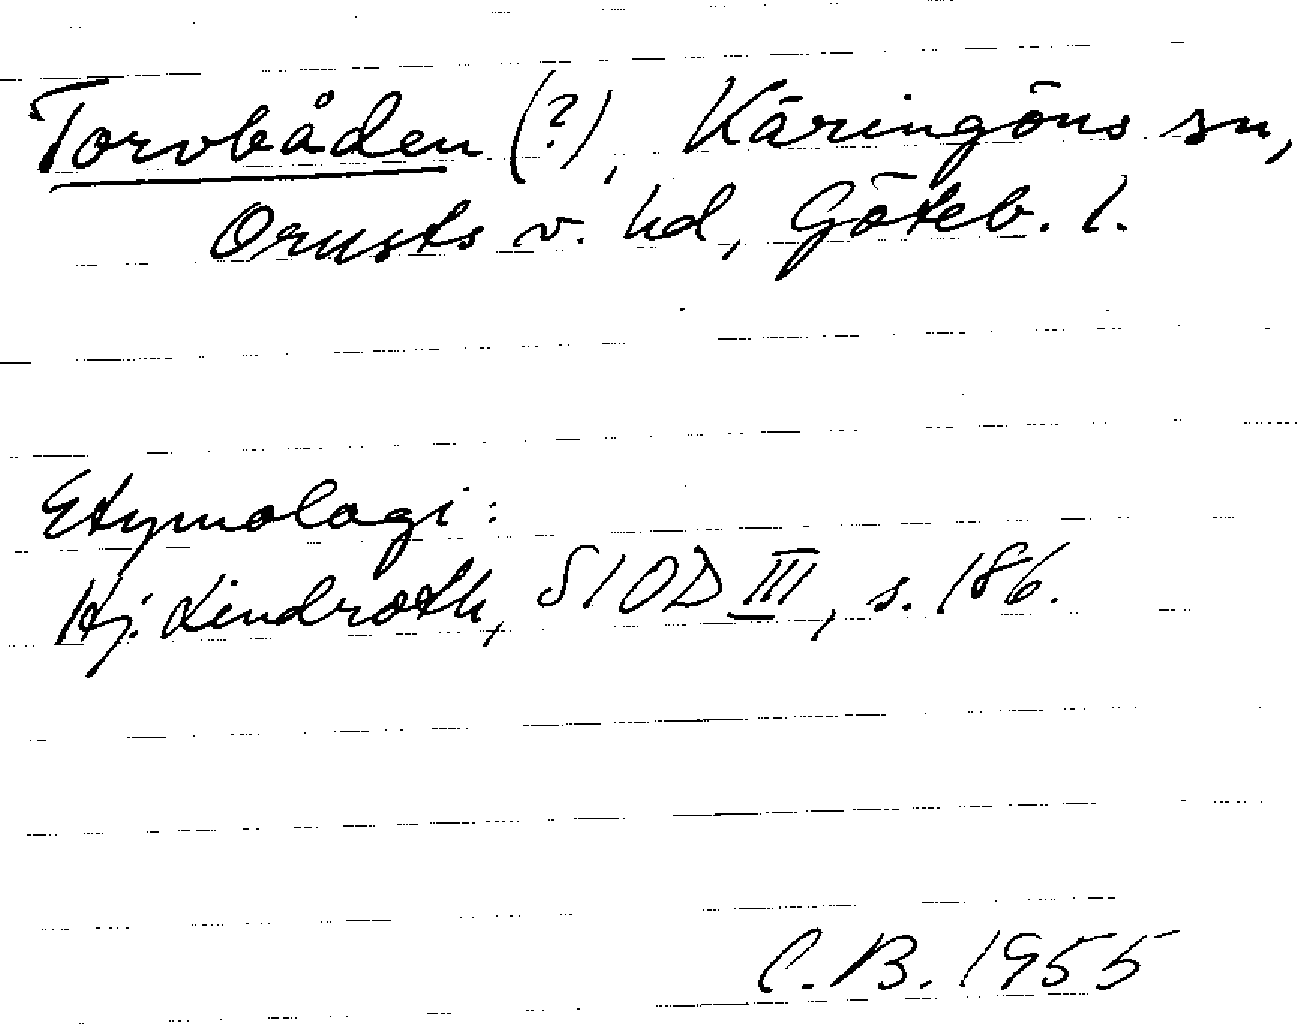 Torvbåden (?), Käringöns sn,
Orusts v. hd, Göteb. l.
Etymologi:
Hj. Lindroth, SIOD III, s. 186.
C.B. 1955